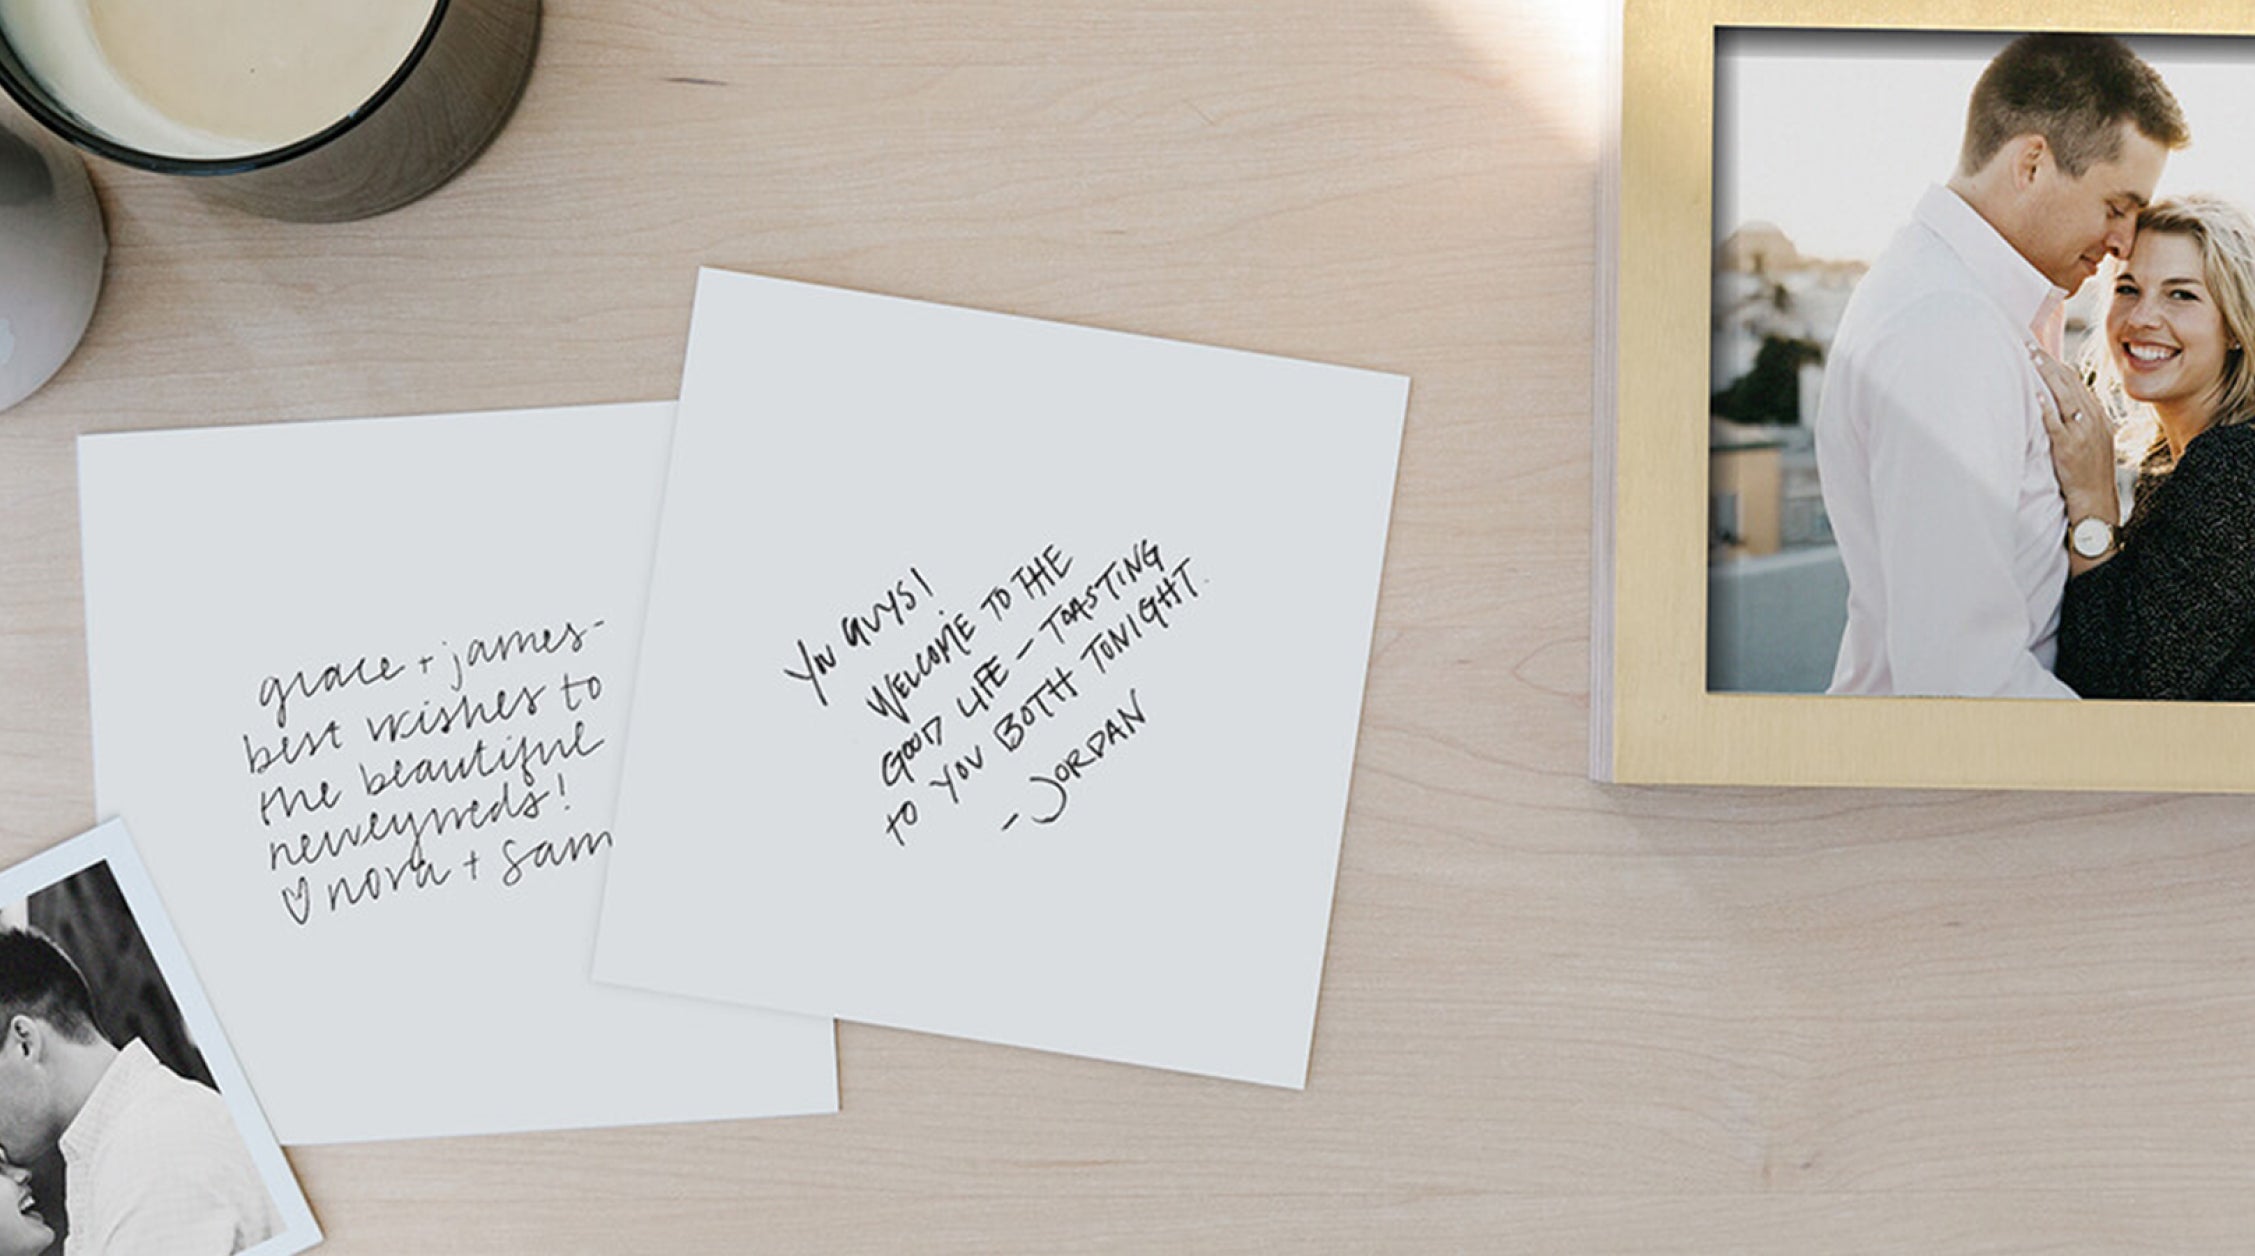 grace + james-
best wishes to
the beautiful
newlyweds!
♡ nova + sam
YOU GUYS!
WELCOME TO THE
GOOD LIFE - TOASTING
TO YOU BOTH TONIGHT.
- JORDAN